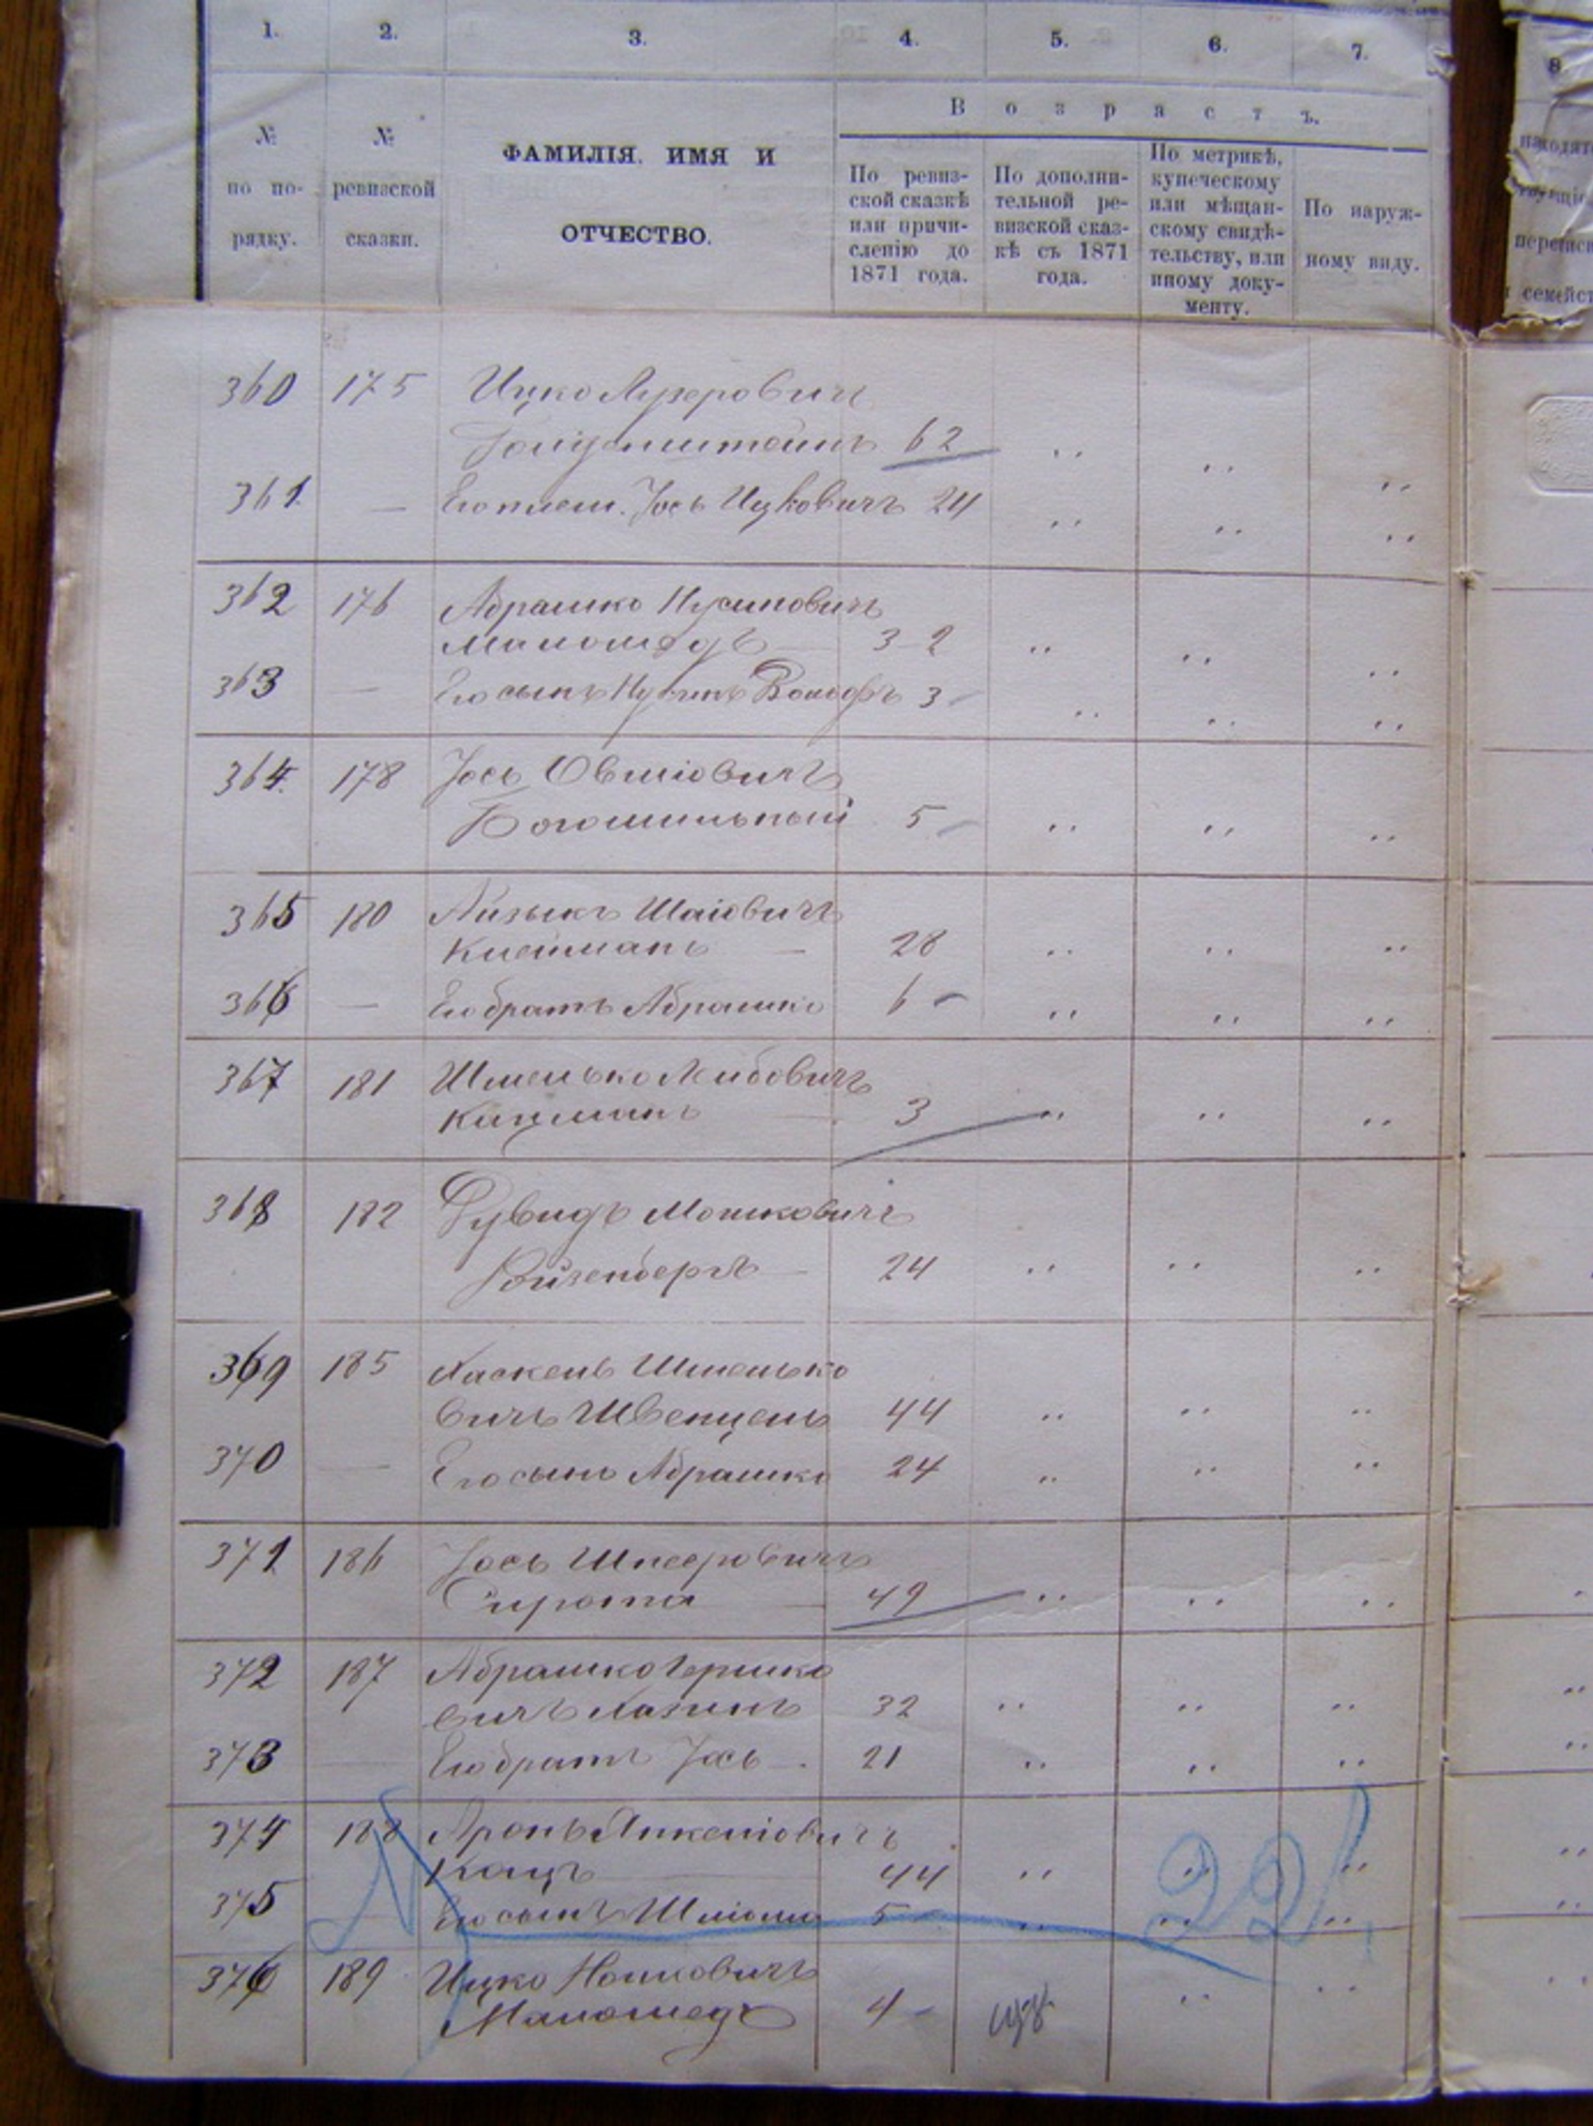 1. 2. 3. 4. 5. 6. 7.
8.
№ по по-рядку.
№ ревизской сказки.
ФАМИЛІЯ, ИМЯ И
ОТЧЕСТВО.
Возрастъ.
По ревиз-
ской сказкѣ
или причи-
сленію до
1871 года.
По дополни-
тельной ре-
визской сказ-
кѣ съ 1871
года.
По метрикѣ,
купеческому
или мѣщан-
скому свидѣ-
тельству, или
иному доку-
менту.
По наруж-
ному виду.
360 175 Ицко Лузеровичъ
Гольденштейнъ 62
361 — Его племян. Іось Ицковичъ 24
362 176 Абрашко Нусиновичъ
Маломедъ 32
363 — Его сынъ Нусинъ Вольфъ 3
364 178 Іось Овшіовичъ
Богомильный 5
365 180 Айзыкъ Шаіовичъ
Клейманъ — 28
366 — Его братъ Абрашко 6
367 181 Шмелько Лейбовичъ
Кацманъ — 3
368 182 Дувидъ Мошковичъ
Ройзенбергъ 24
369 185 Хаскель Шмелько
вичъ Швенцель 44
370 — Его сынъ Абрашко 24
371 186 Іось Шнееровичъ
Сирота — 49
372 187 Абрашко Гершко
вичъ Хазинъ 32
373 — Его братъ Іось — 21
374 188 Аронъ Янкеліовичъ
Кацъ 44
375 Его сынъ Шліома 5
376 189 Ицко Ноиловичъ
Маломедъ 4
221